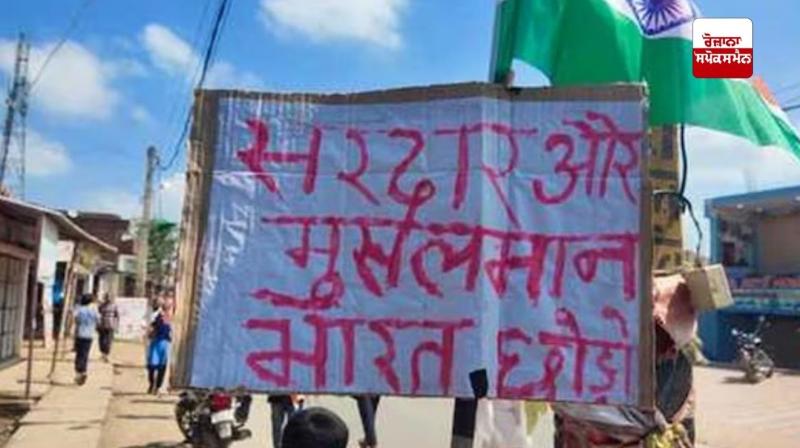 ਰੋਜ਼ਾਨਾ
ਸਪੋਕਸਮੈਨ
सरदार और
मुसलमान
भारत छोड़ो